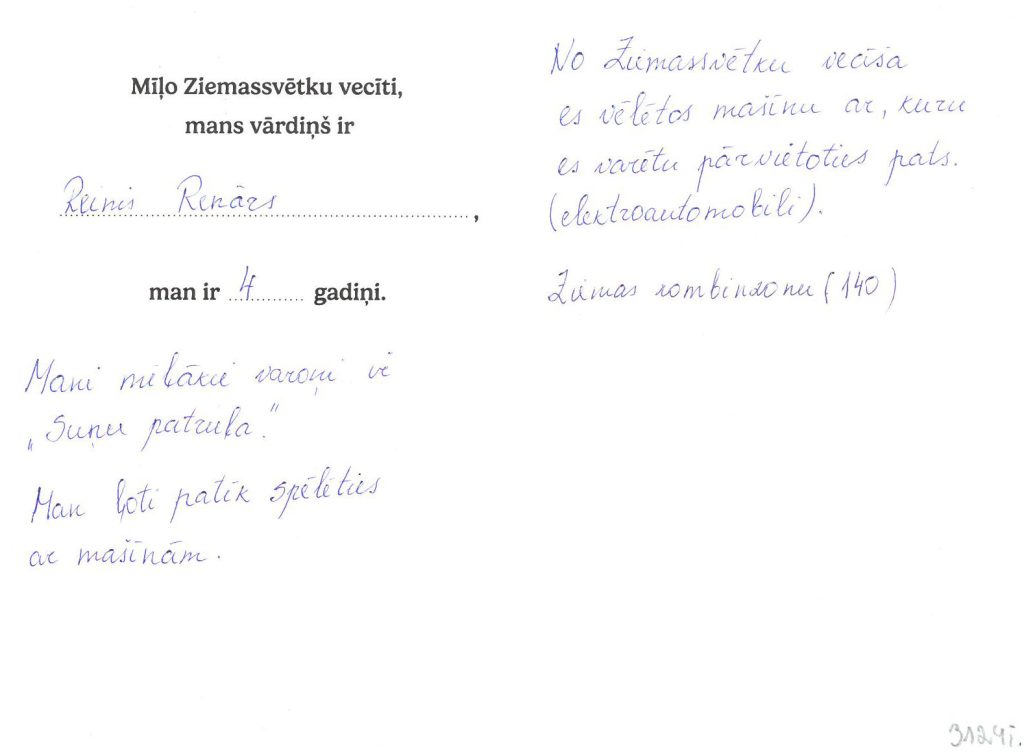 Mīļo Ziemassvētku vecīti,
mans vārdiņš ir
Reinis Renārs,
man ir 4 gadiņi.
Mani mīļākie varoņi ir
„Suņu patruļa."
Man ļoti patīk spēlēties
ar mašīnām.
No Ziemassvētku vecīša
es vēlētos mašīnu ar, kuru
es varētu pārvietoties pats.
(elektroautomobili).
Ziemas kombinzonu (140)